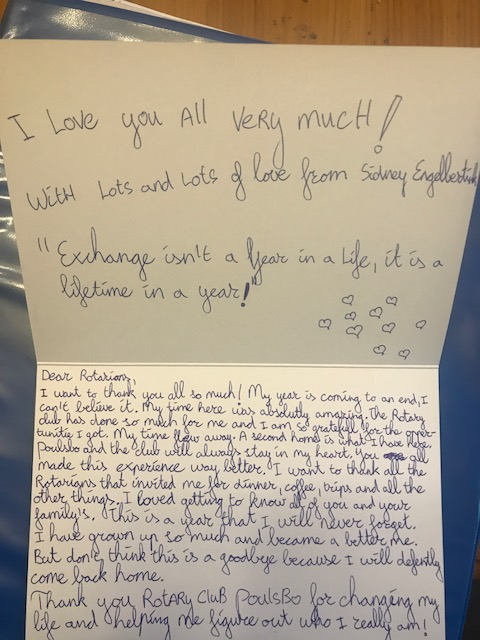 I Love you All very much!
With Lots and Lots of love from Sidney
"Exchange isn't a Year in a Life, it is a
lifetime in a year!"
Dear Rotarians,
I want to thank you all so much! My year is coming to an end, I
can't believe it. My time here was absolutly amazing. The Rotary
club has done so much for me and I am so gratefull for the oppor-
tunitie I got. My time flew away. A second home is what I have here.
Poulsbo and the club will always stay in my heart. You all
made this experience way better. I want to thank all the
Rotarians that invited me for dinner, coffee, trips and all the
other things. I loved getting to know all of you and your
family's. This is a year that I will never forget.
I have grown up so much and became a better me.
But don't think this is a goodbye because I will defently
come back home.
Thank you Rotary Club Poulsbo for changing my
life and helping me figure out who I really am!